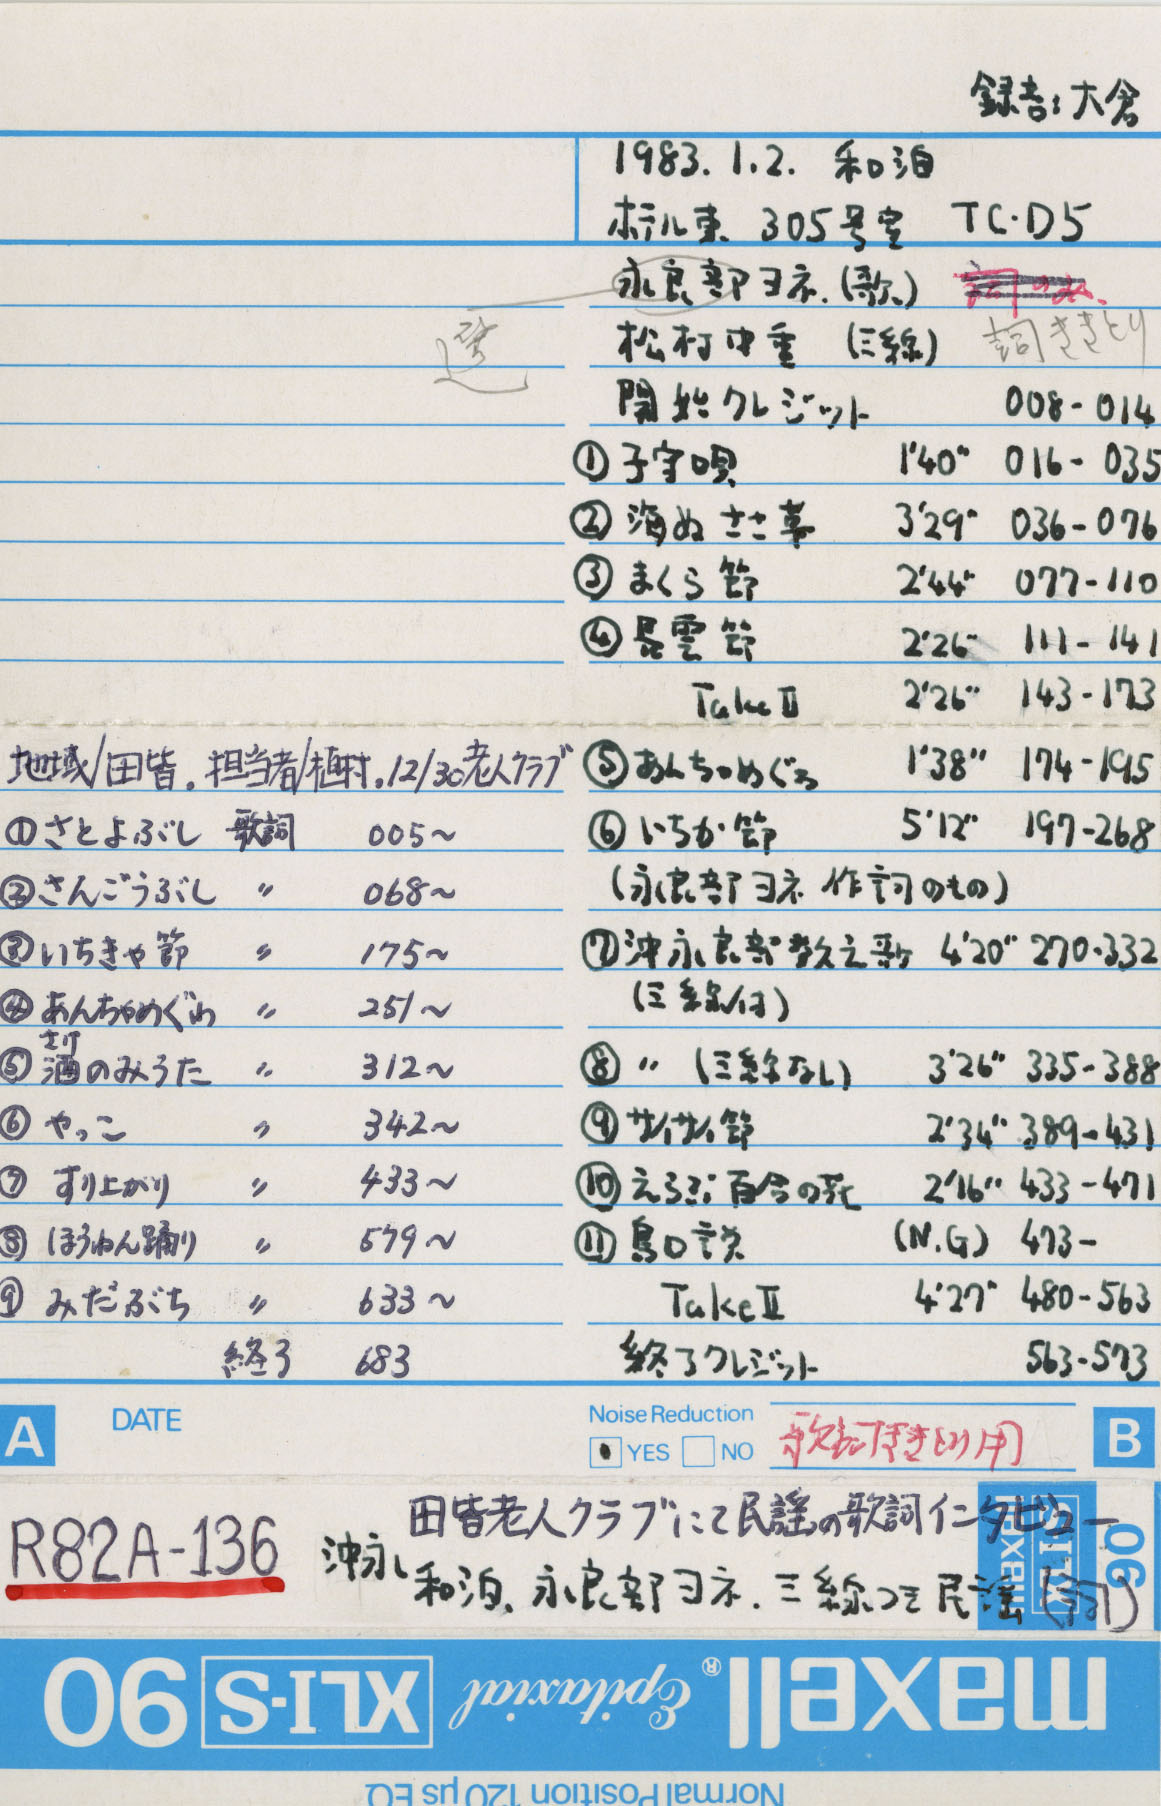 録音:大倉
1983.1.2. 和泊
ホテル東 305号室 TC・D5
永良部ヨネ.(歌)
松村 重 (三線) 詞ききとり
開始クレジット 008-014
① 子守唄 1'40" 016-035
② 海ぬささ草 3'29" 036-076
③ まくら節 2'44" 077-110
④ 長雲節 2'26" 111-141
Take II 2'26" 143-173
⑤ あんちゃめぐゎ 1'38" 174-195
⑥ いちか節 5'12" 197-268
(永良部ヨネ 作詞のもの)
⑦ 沖永良部数え歌 4'20" 270-332
(三線付)
⑧ 〃 (三線なし) 3'26" 335-388
⑨ サイサイ節 2'34" 389-431
⑩ えらぶ百合の花 2'16" 433-471
⑪ 鳥口説 (N.G) 473-
Take II 4'27" 480-563
終了クレジット 563-573
地域/田皆. 担当者/植村.12/30老人クラブ
① さとよぶし 歌詞 005~
② さんごうぶし 〃 068~
③ いちきゃ節 〃 175~
④ あんちゃめぐゎ 〃 251~
さけ
⑤ 酒のみうた 〃 312~
⑥ やっこ 〃 342~
⑦ すり上がり 〃 433~
⑧ ほうねん踊り 〃 579~
⑨ みだぶち 〃 633~
終了 683
A
DATE
Noise Reduction
YES NO
歌詞ききとり用
B
R82A-136
田皆老人クラブにて民謡の歌詞インタビュー
沖永し 和泊、永良部ヨネ. 三線つき民謡
maxell XLI-S 90
maxell® Epitaxial XLI-S 90
Normal Position 120μs EQ